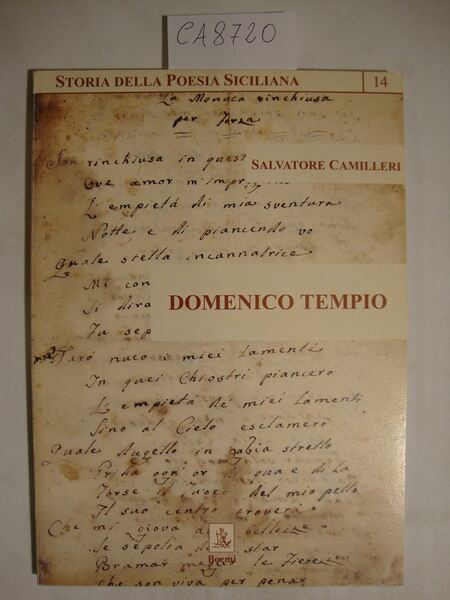 CA8720
STORIA DELLA POESIA SICILIANA
14
La Monaca rinchiusa
per Forza
Son rinchiusa in quest
SALVATORE CAMILLERI
Ove amor m'impri
L'empietá di mia sventura
Notte, e di piancendo vo
Quale stella incannatrice
Mi con
DOMENICO TEMPIO
Si dira
Fu sep
Farò nuco e miei lamenti
In quei Chiostri piancerò
L'empietá de' miei lamenti
Sino al Cielo esclamerò
Quale Augello in gabia stretto
Grida ogn'or di qua e di la
Forse il fuoco del mio petto
Il suo centro troverà
Che mi giova bellezze
Se sepolta star
Bramar le Fierezze
Che son viva per penar
Boemi